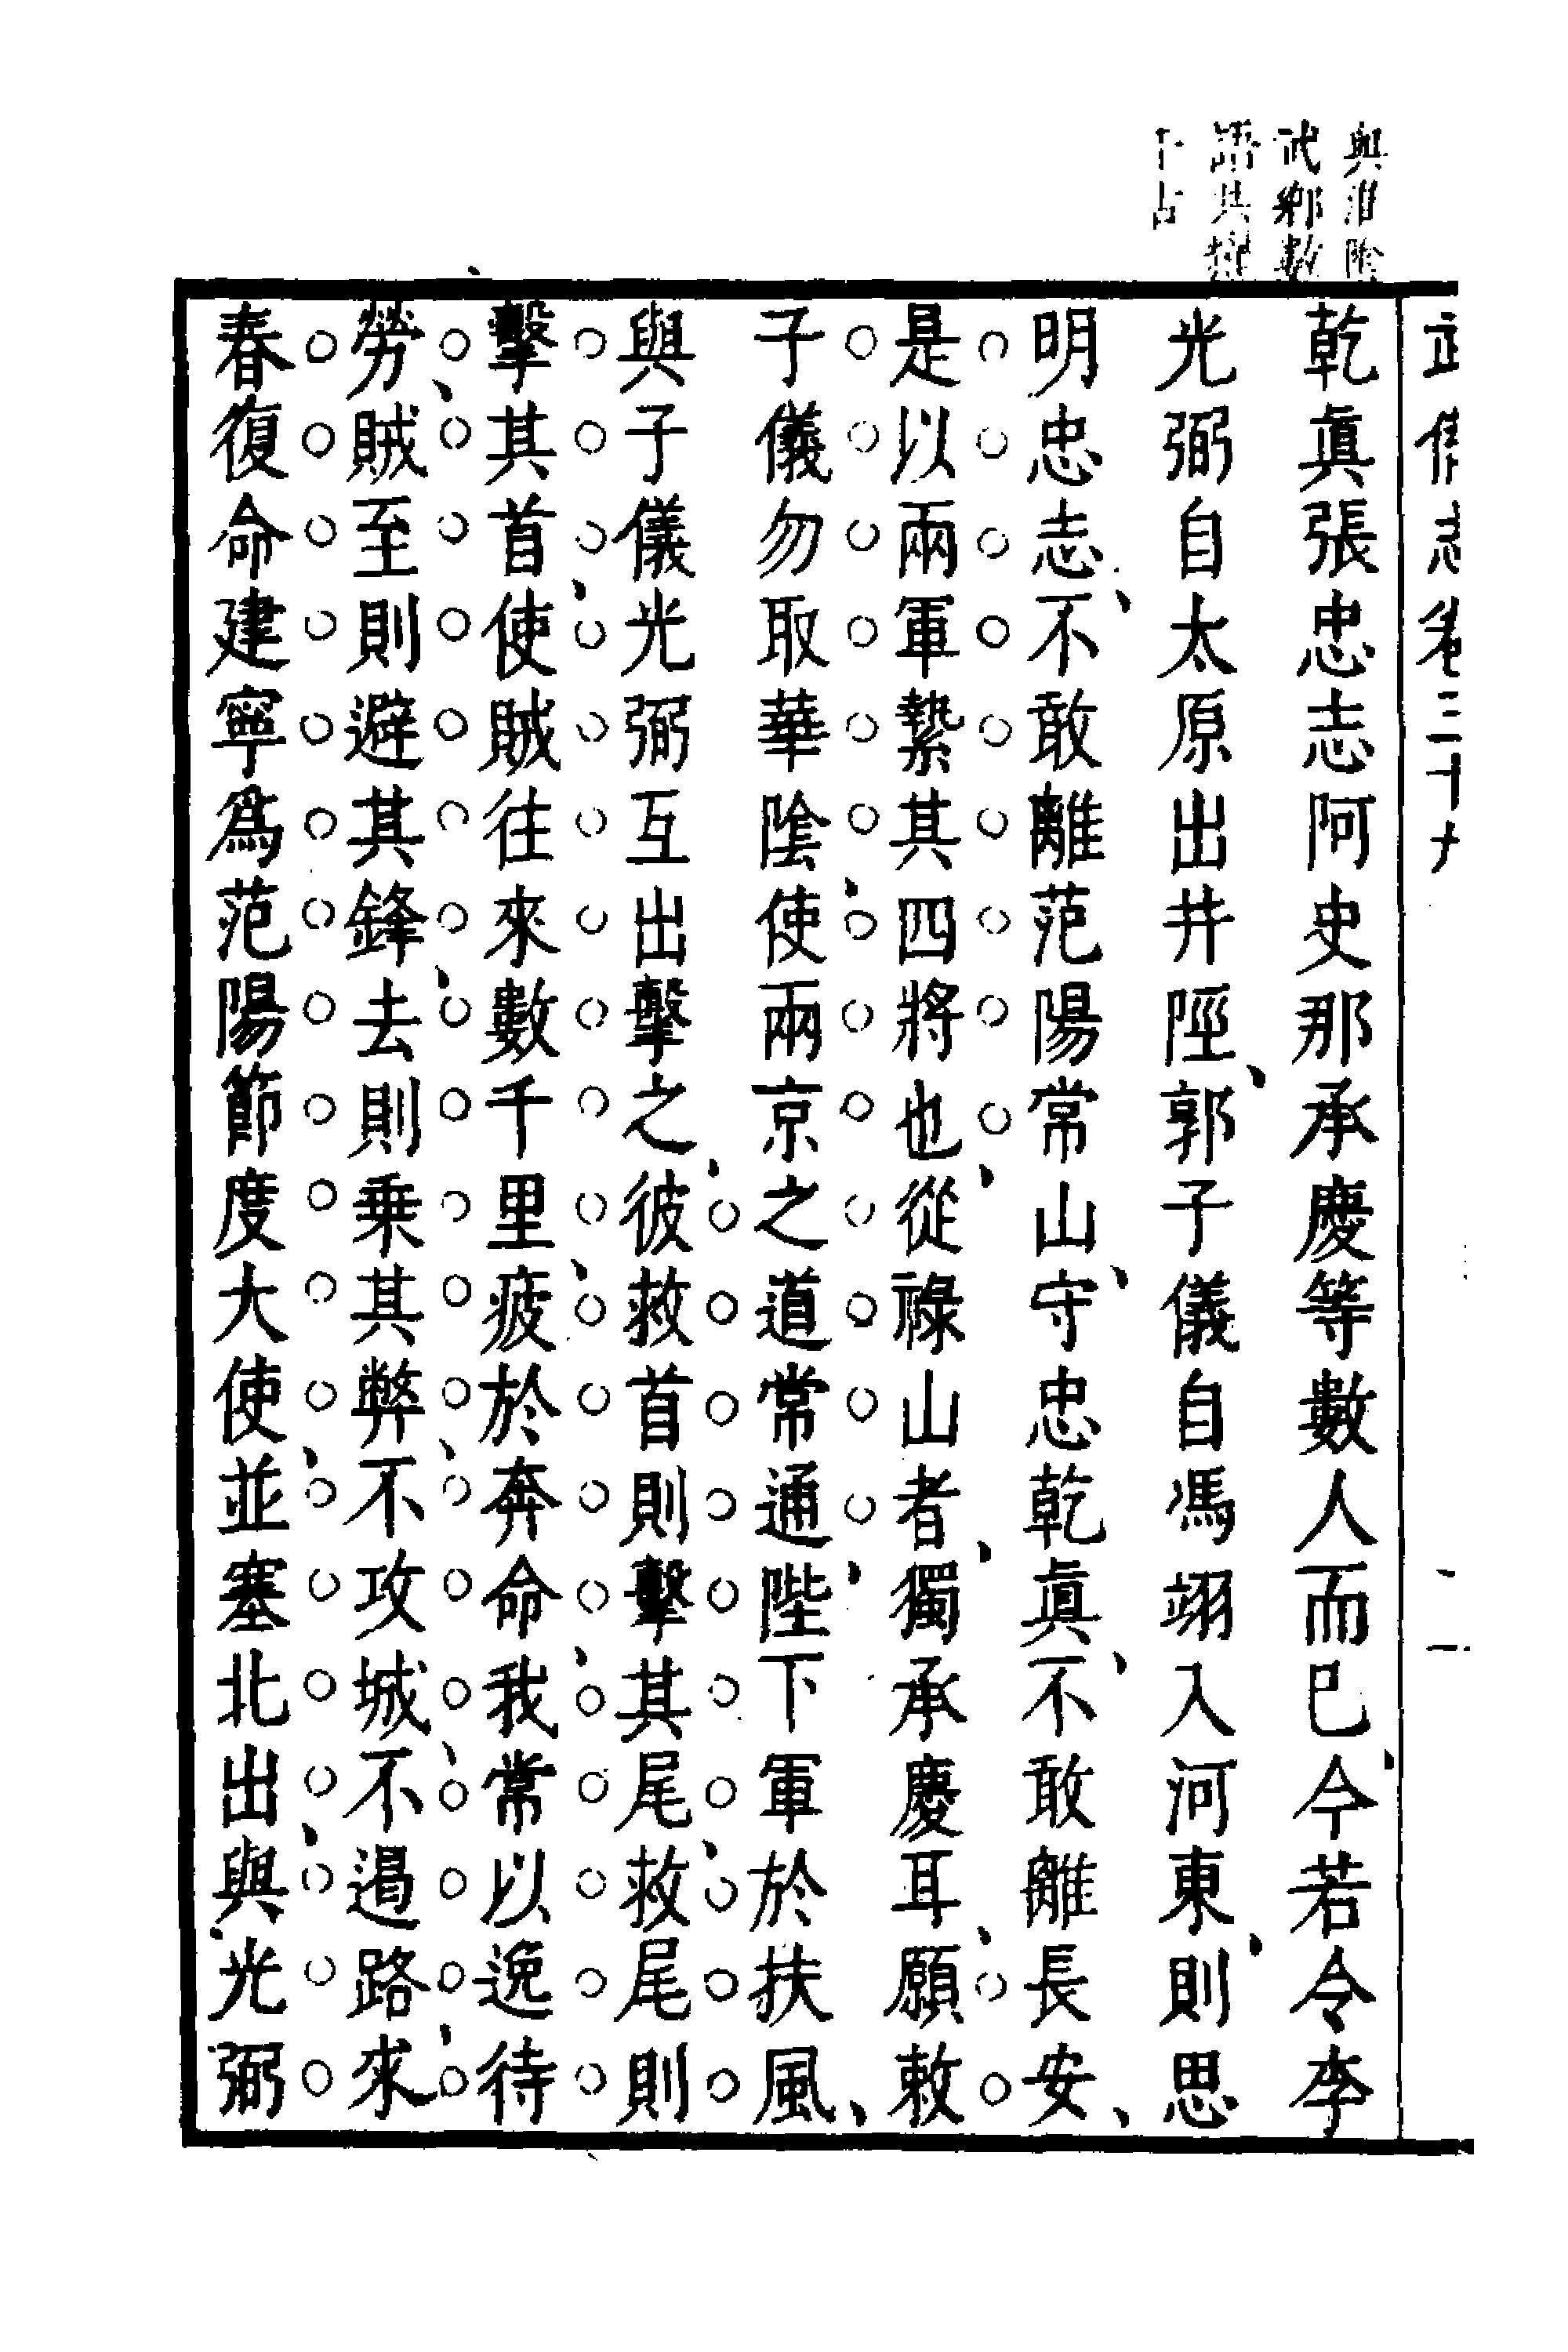 武備志卷三十九
與淮陰
武鄉數
語共
千古
乾真張忠志阿史那承慶等數人而巳今若令李
光弼自太原出井陘郭子儀自馮翊入河東則思
明忠志不敢離范陽常山守忠乾真不敢離長安
是以兩軍縶其四將也從祿山者獨承慶耳願敕
子儀勿取華陰使兩京之道常通陛下軍於扶風
與子儀光弼互出擊之彼救首則擊其尾救尾則
擊其首使賊往來數千里疲於奔命我常以逸待
勞賊至則避其鋒去則乗其弊不攻城不遏路來
春復命建寧爲范陽節度大使並塞北出與光弼